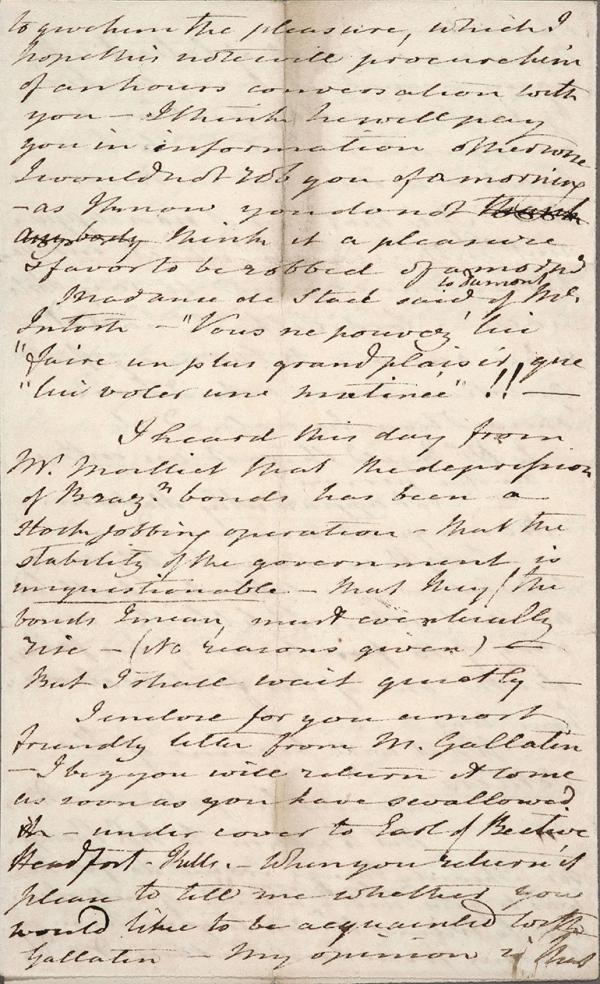 to give him the pleasure, which I
hope this note will procure him
of an hours conversation with
you – I think he will pay
you in information otherwise
I would not rob you of a morning
– as I know you do not thank
any body think it a pleasure
& favor to be robbed of a morng
to Dumont
Madame de Stael said of Mr.
"Vous ne pouvez lui
"faire un plus grand plaisir que
"lui voler une matinée" !! —
I heard this day from
Mr. that the depression
of Braz.n bonds has been a
stock jobbing operation – that the
stability of the government is
unquestionable – that they (the
bonds I mean) must eventually
rise – (No reasons given) –
But I shall wait quietly –
I enclose for you a most
friendly letter from M. Gallatin
– I beg you will return it to me
as soon as you have swallowed
it – under cover to Earl of Bective
Headfort – Kells. – When you return it
please to tell me whether you
would like to be acquainted with
Gallatin – My opinion is that